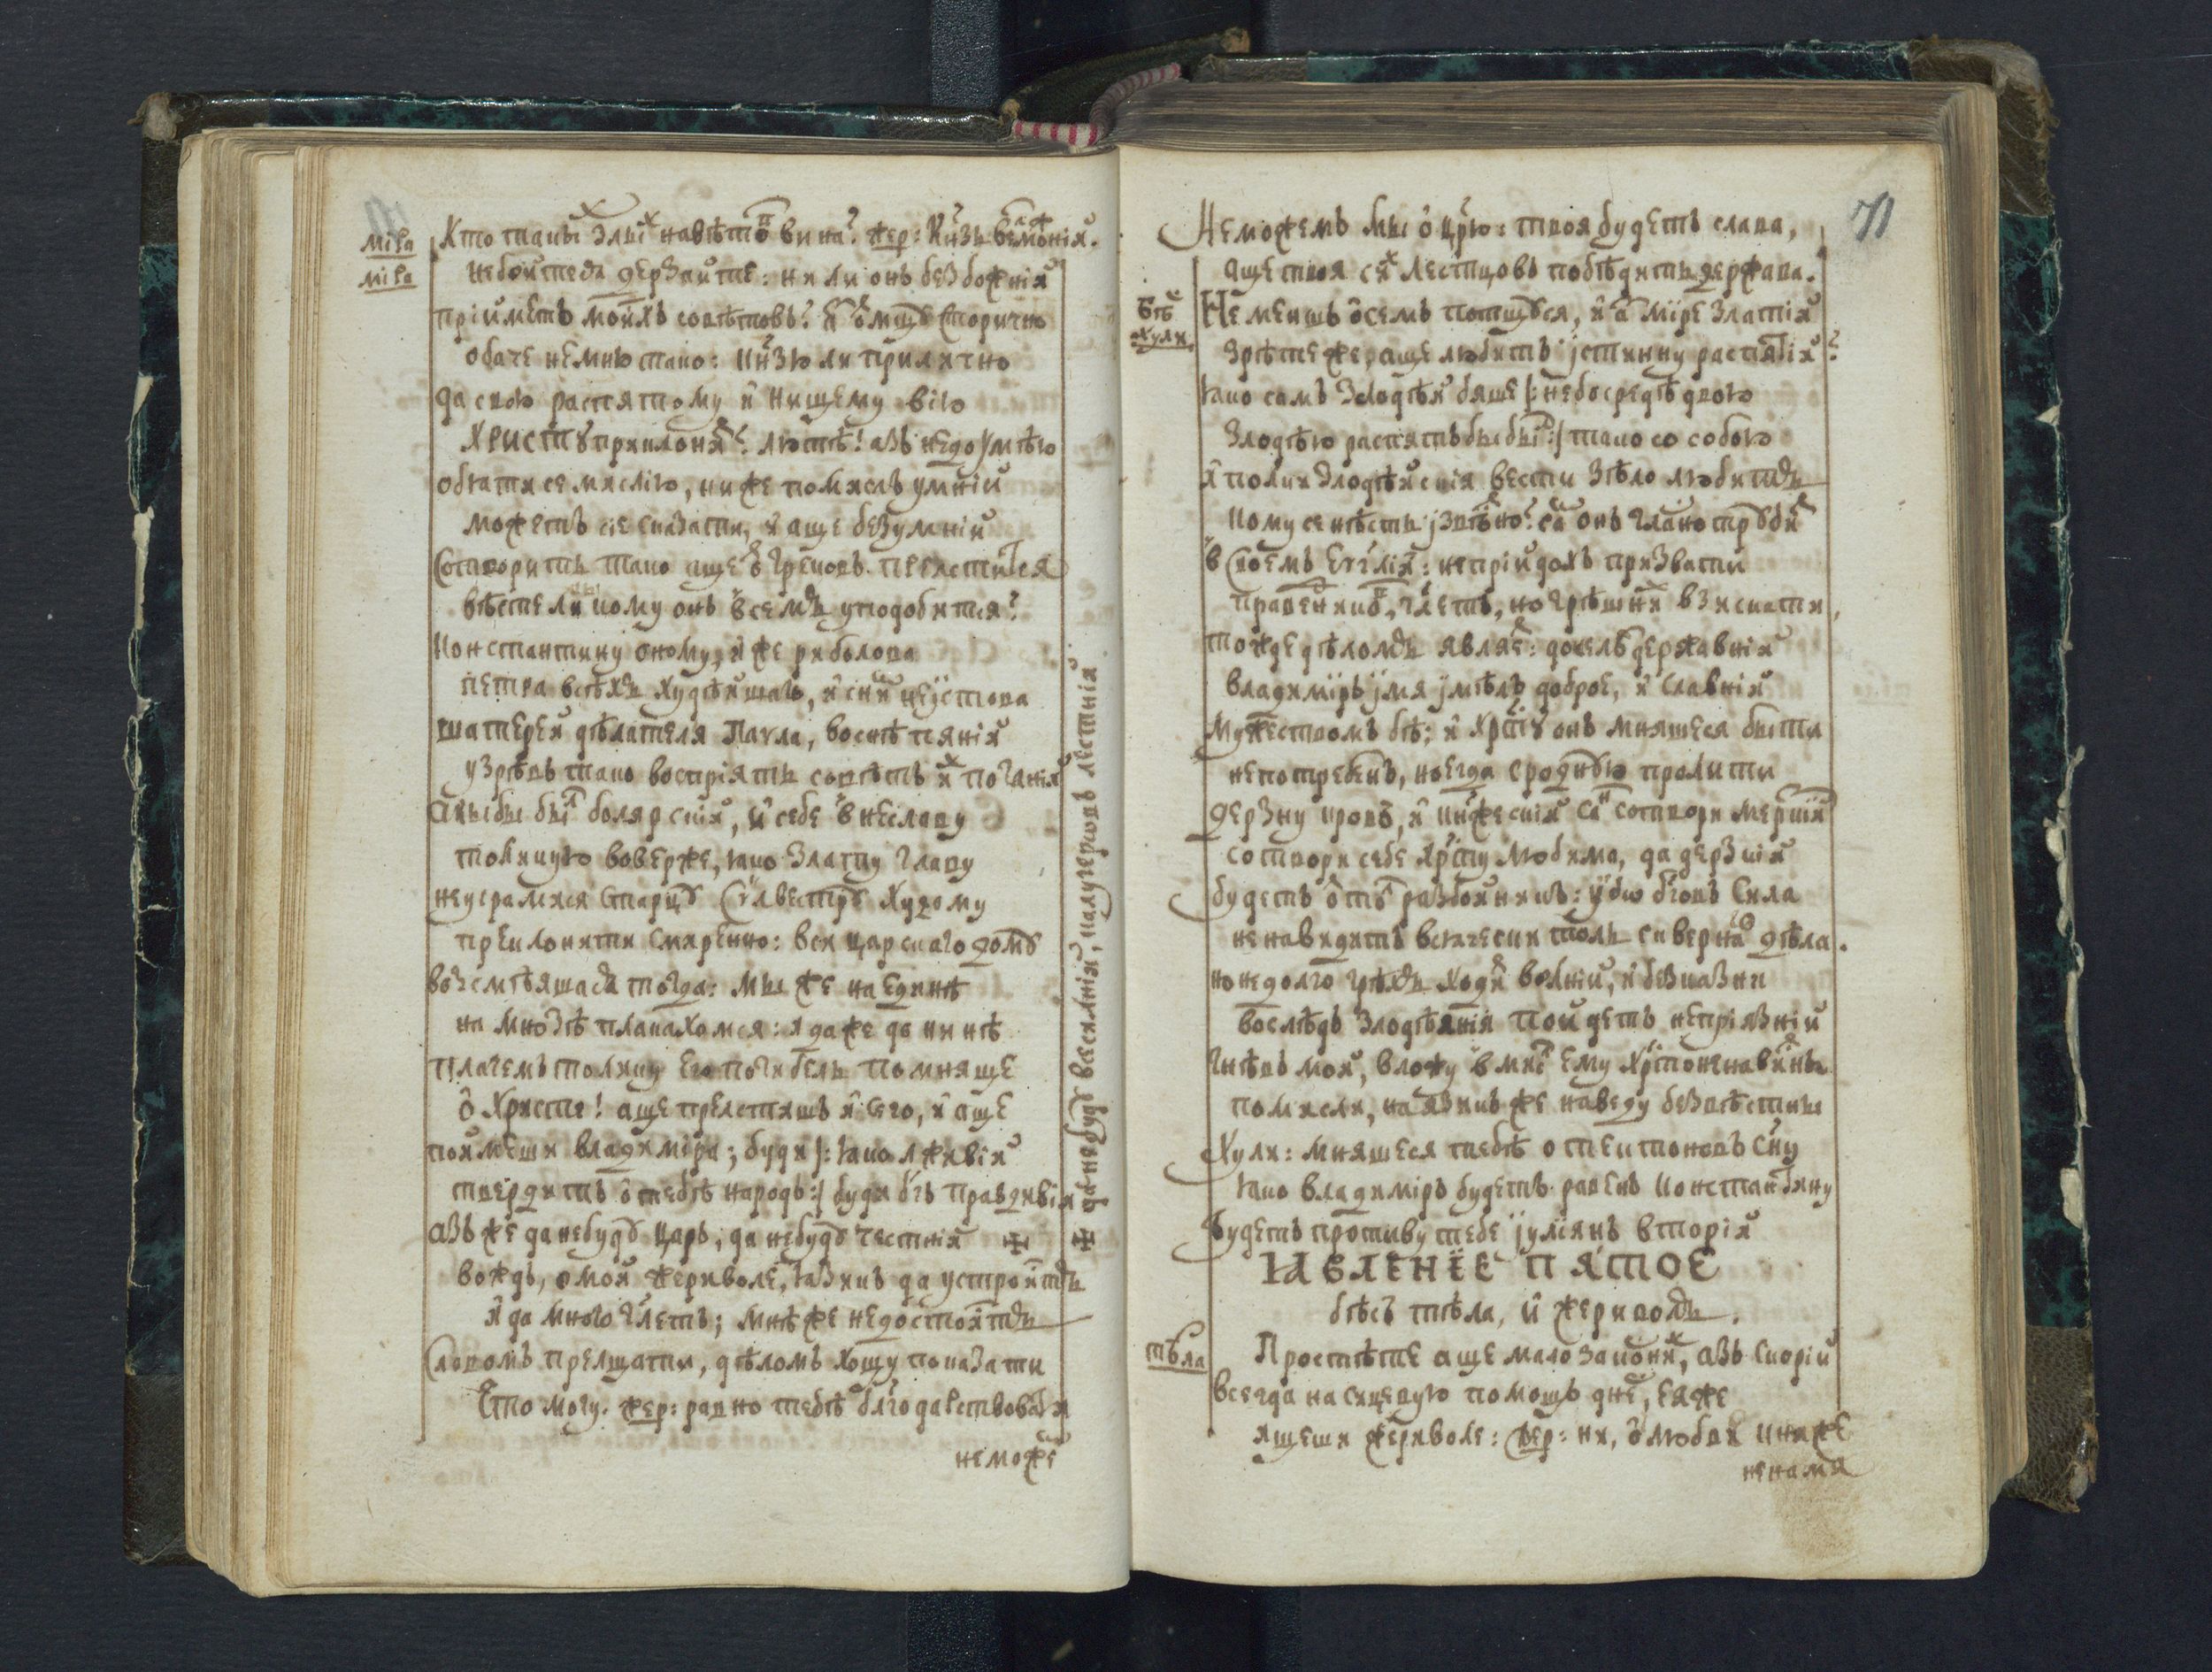 мїра
мїра
Кто таны злыⷯ навѣтоⷡ вина? жер: Кн҃зь веⷧможнїй.
небойтеса дерзайте: нили онъ безбожнїй
прїиметъ мойхъ совѣтовъ? и ѿмщꙋ сторично
обаче немню тако: кн҃зю ли прилично
да свою распятому и нищему вїю
Христꙋ приклониⷮ? лютѣ! азъ недоумѣю
обꙗти се мислїю, ниже помислъ умнїй
можетъ сїе сказати, и аще безумнїй
Сотворитъ тако аще ѿ грековъ прелстится
вѣсте ли кому онъ всемъ уподобится?
Константину оному, иже риболова
петра всѣхъ худѣйшаго, и скинцеистова
шатерей дѣлателя Паѵла, воснѣ пꙗнїй
узрѣвъ тако воспрїятъ совѣтъ иⷯ поганїй
Акыбы быⷧ болярскїй, и себе в неславу
толикую вовержe, ꙗко златну главу
неусрамися старцꙋ Сѵлвестрꙋ худому
преклонити смиренно: вси царскаго домꙋ
возсмѣяшася тогда: мы же наединѣ
на мнозѣ плакахомся: я даже до нинѣ
плачемъ толику его погибель помняще
ѡ Христе! аще прелстишъ и сего, и аще
поймеши владимїра; буди /: ꙗко лживїй
твердитъ ѡ тебѣ народъ :/ буди бг҃ъ правдивїй
азъ же да небудꙋ царь, да небудꙋ честнїй ✠
вождь, о мой жериволе, ꙗзикъ да устройтъ
и да много гл҃етъ; мнѣ же недостойтъ
Словомъ прелщати, дѣломъ хощу показати
Что могу. жер: равно тебѣ бл҃годарствовати
неможеⷨ
✠ да небудꙋ всесилнїй, калугеровъ лестнїй
71
Неможемъ мы ѡ цр҃ю: твоя будетъ слава,
аще твоя сиⷯ лестцовъ побѣдитъ держава.
бѣⷭ
хули,
Не менш ѡ семъ потщꙋся, и а мїре златїй
зрѣтеже, аще любитъ истинну распятїй?
ꙗко самъ злодѣй бяше /: небосредѣ двою
злодѣю распятъ быбыⷧ :/ тако со собою
и полки злодѣйскїя вести зѣло любитъ
кому се нѣсть извѣⷭно? саⷨ онъ гласно трꙋбиⷮ
в своемъ Еѵглїи: непрїйдохъ призвати
праведникоⷡ, гл҃етъ, но грѣшниⷯ взискати,
тожде дѣломъ являеⷮ: доселѣ державнїй
владимїръ имя имѣлъ доброе, и славнїй
мужествомъ бѣ; и Хрⷭтꙋ онъ мняшеся быти
непотребенъ, но егда сроднꙋю пролити
дерзну кровъ, и кнѧжескїй саⷩ сотвори мерзкїй
сотвори себе Хрⷭту любима, да дерзкїй
будетъ ѡтъ разбойникъ: ибо бг҃овъ сила
ненавидитъ всꙗчески толь сквернаго дѣла.
но недолго грѣхъ ходиⷮ волнїй, и безказни
вослѣдъ злодѣянїй пойдетъ непрїязнїй
гнѣвъ мой, вложу в миⷭл ему Хрⷭтоненавиⷭнъ
помисли, на язикъ же наведу безвѣстны
Хули: мняшеся тебѣ о тектоновъ сн҃у
ꙗко владимїръ будетъ равенъ Константину
будетъ противу тебе іулїянъ вторїй
ꙖВЛЕНЇЕ ПЯТОЕ
бѣсъ тѣла, и жериволъ.
тѣла
Простѣте аще мало закосниⷯ, азъ скорїй
всегда на сицевую помощъ днеⷭ, еяже
ищеши жериволе: жер: ни, ѡ любви книже
ненамя